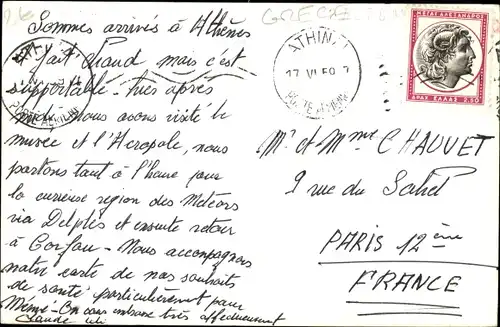 GRECE
Sommes arrivés à Athènes
fait chaud mais c'est
supportable - très après
midi. Nous avons visité le
musée et l'Acropole, nous
partons tout à l'heure pour
la curieuse region des Meteors
via Delphes et ensuite retour
à Corfou - Nous accompagnons
notre carte de nos souhaits
de santé particulièrement pour
Mémé - On vous embrasse très affectueusement
Claude
ATHINAI
17 VI 60 7
ΜΕΓΑΣ ΑΛΕΞΑΝΔΡΟΣ
ΔΡΑΧ ΕΛΛΑΣ 2.50
Mr et Mme CHAUVET
9 rue du Sahel
PARIS 12ème
FRANCE